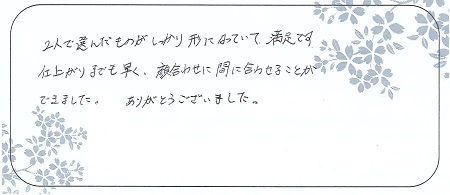 2人で選んだものがしっかり形になっていて、満足です
仕上がりまでも早く、顔合わせに間に合わせることが
できました。 ありがとうございました。